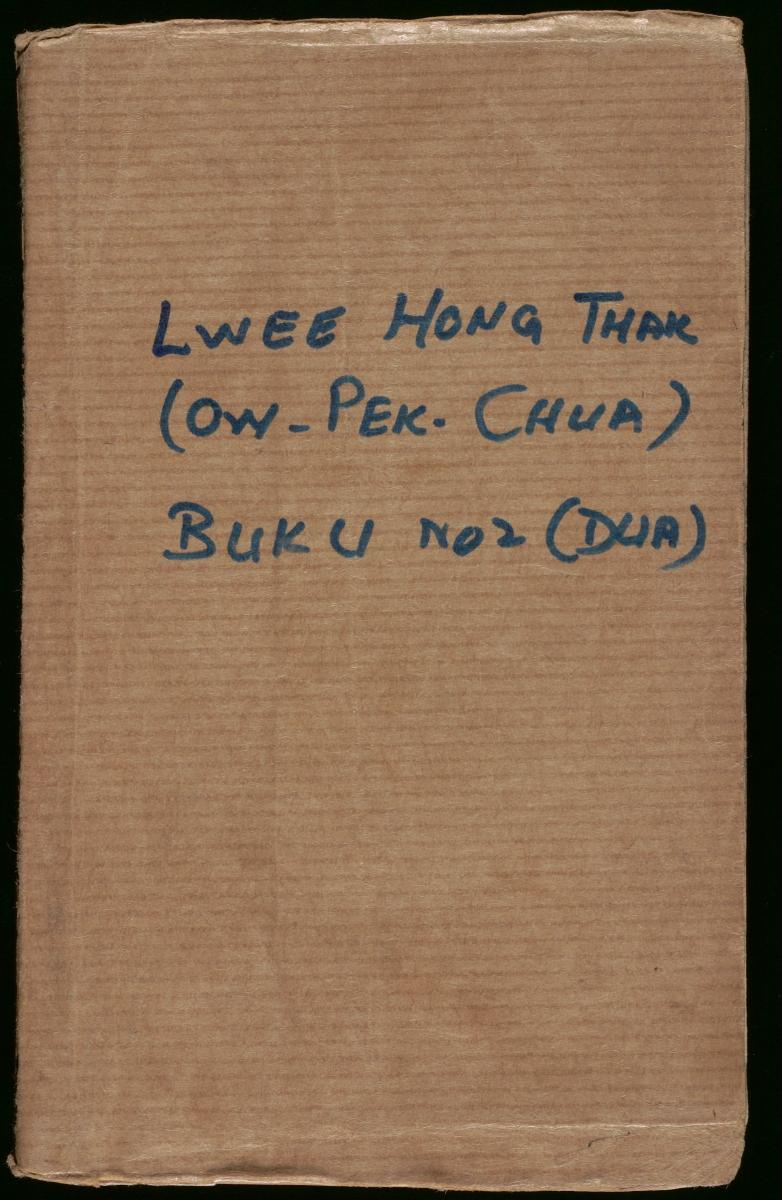 LWEE HONG THAK
(OW-PEK. CHUA)
BUKU NO2 (DUA)